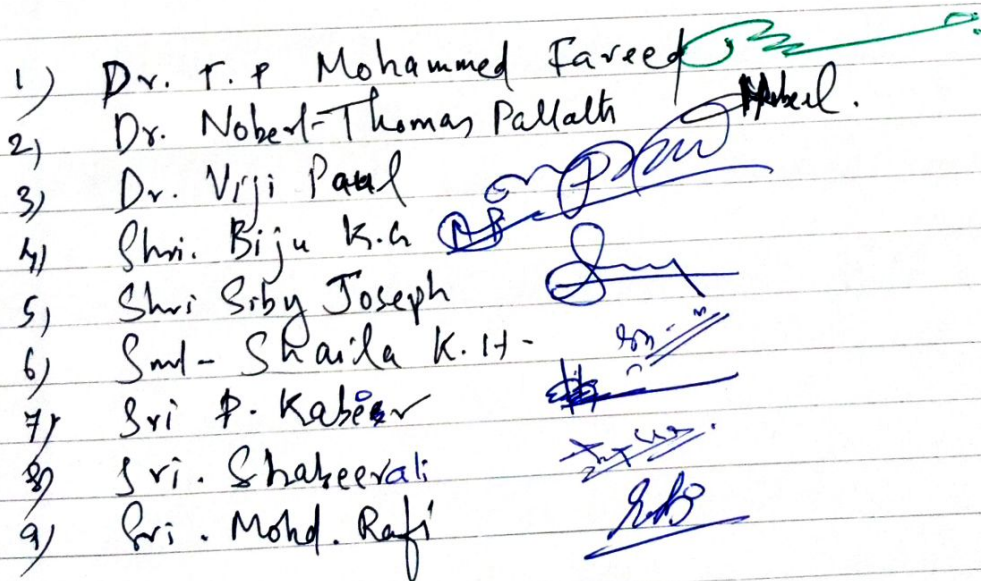 1) Dr. T. P Mohammed Fareed
2) Dr. Nobert Thomas Pallath
3) Dr. Viji Paul
4) Shri. Biju K.G
5) Shri Siby Joseph
6) Smt - Shaila K. H -
7) Sri P. Kabeer
8) Sri. Shabeerali
9) Sri. Mohd. Rafi